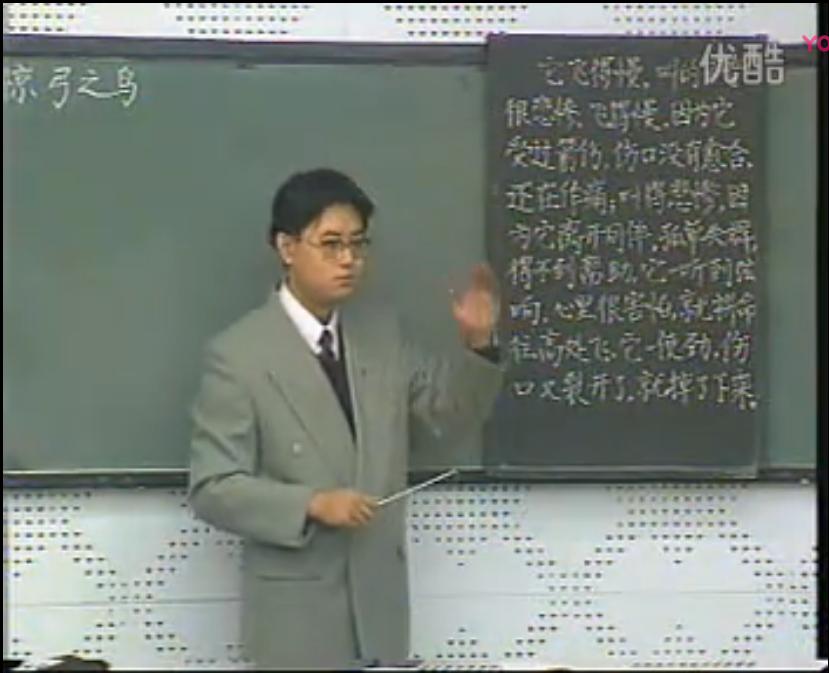 惊弓之鸟
它飞得慢,叫的
很悲惨。飞得慢,因为它
受过箭伤,伤口没有愈合,
还在作痛;叫得悲惨,因
为它离开同伴,孤单失群,
得不到帮助。它一听到弦
响,心里很害怕,就拼命
往高处飞。它一使劲,伤
口又裂开了,就掉了下来。
优酷
YO